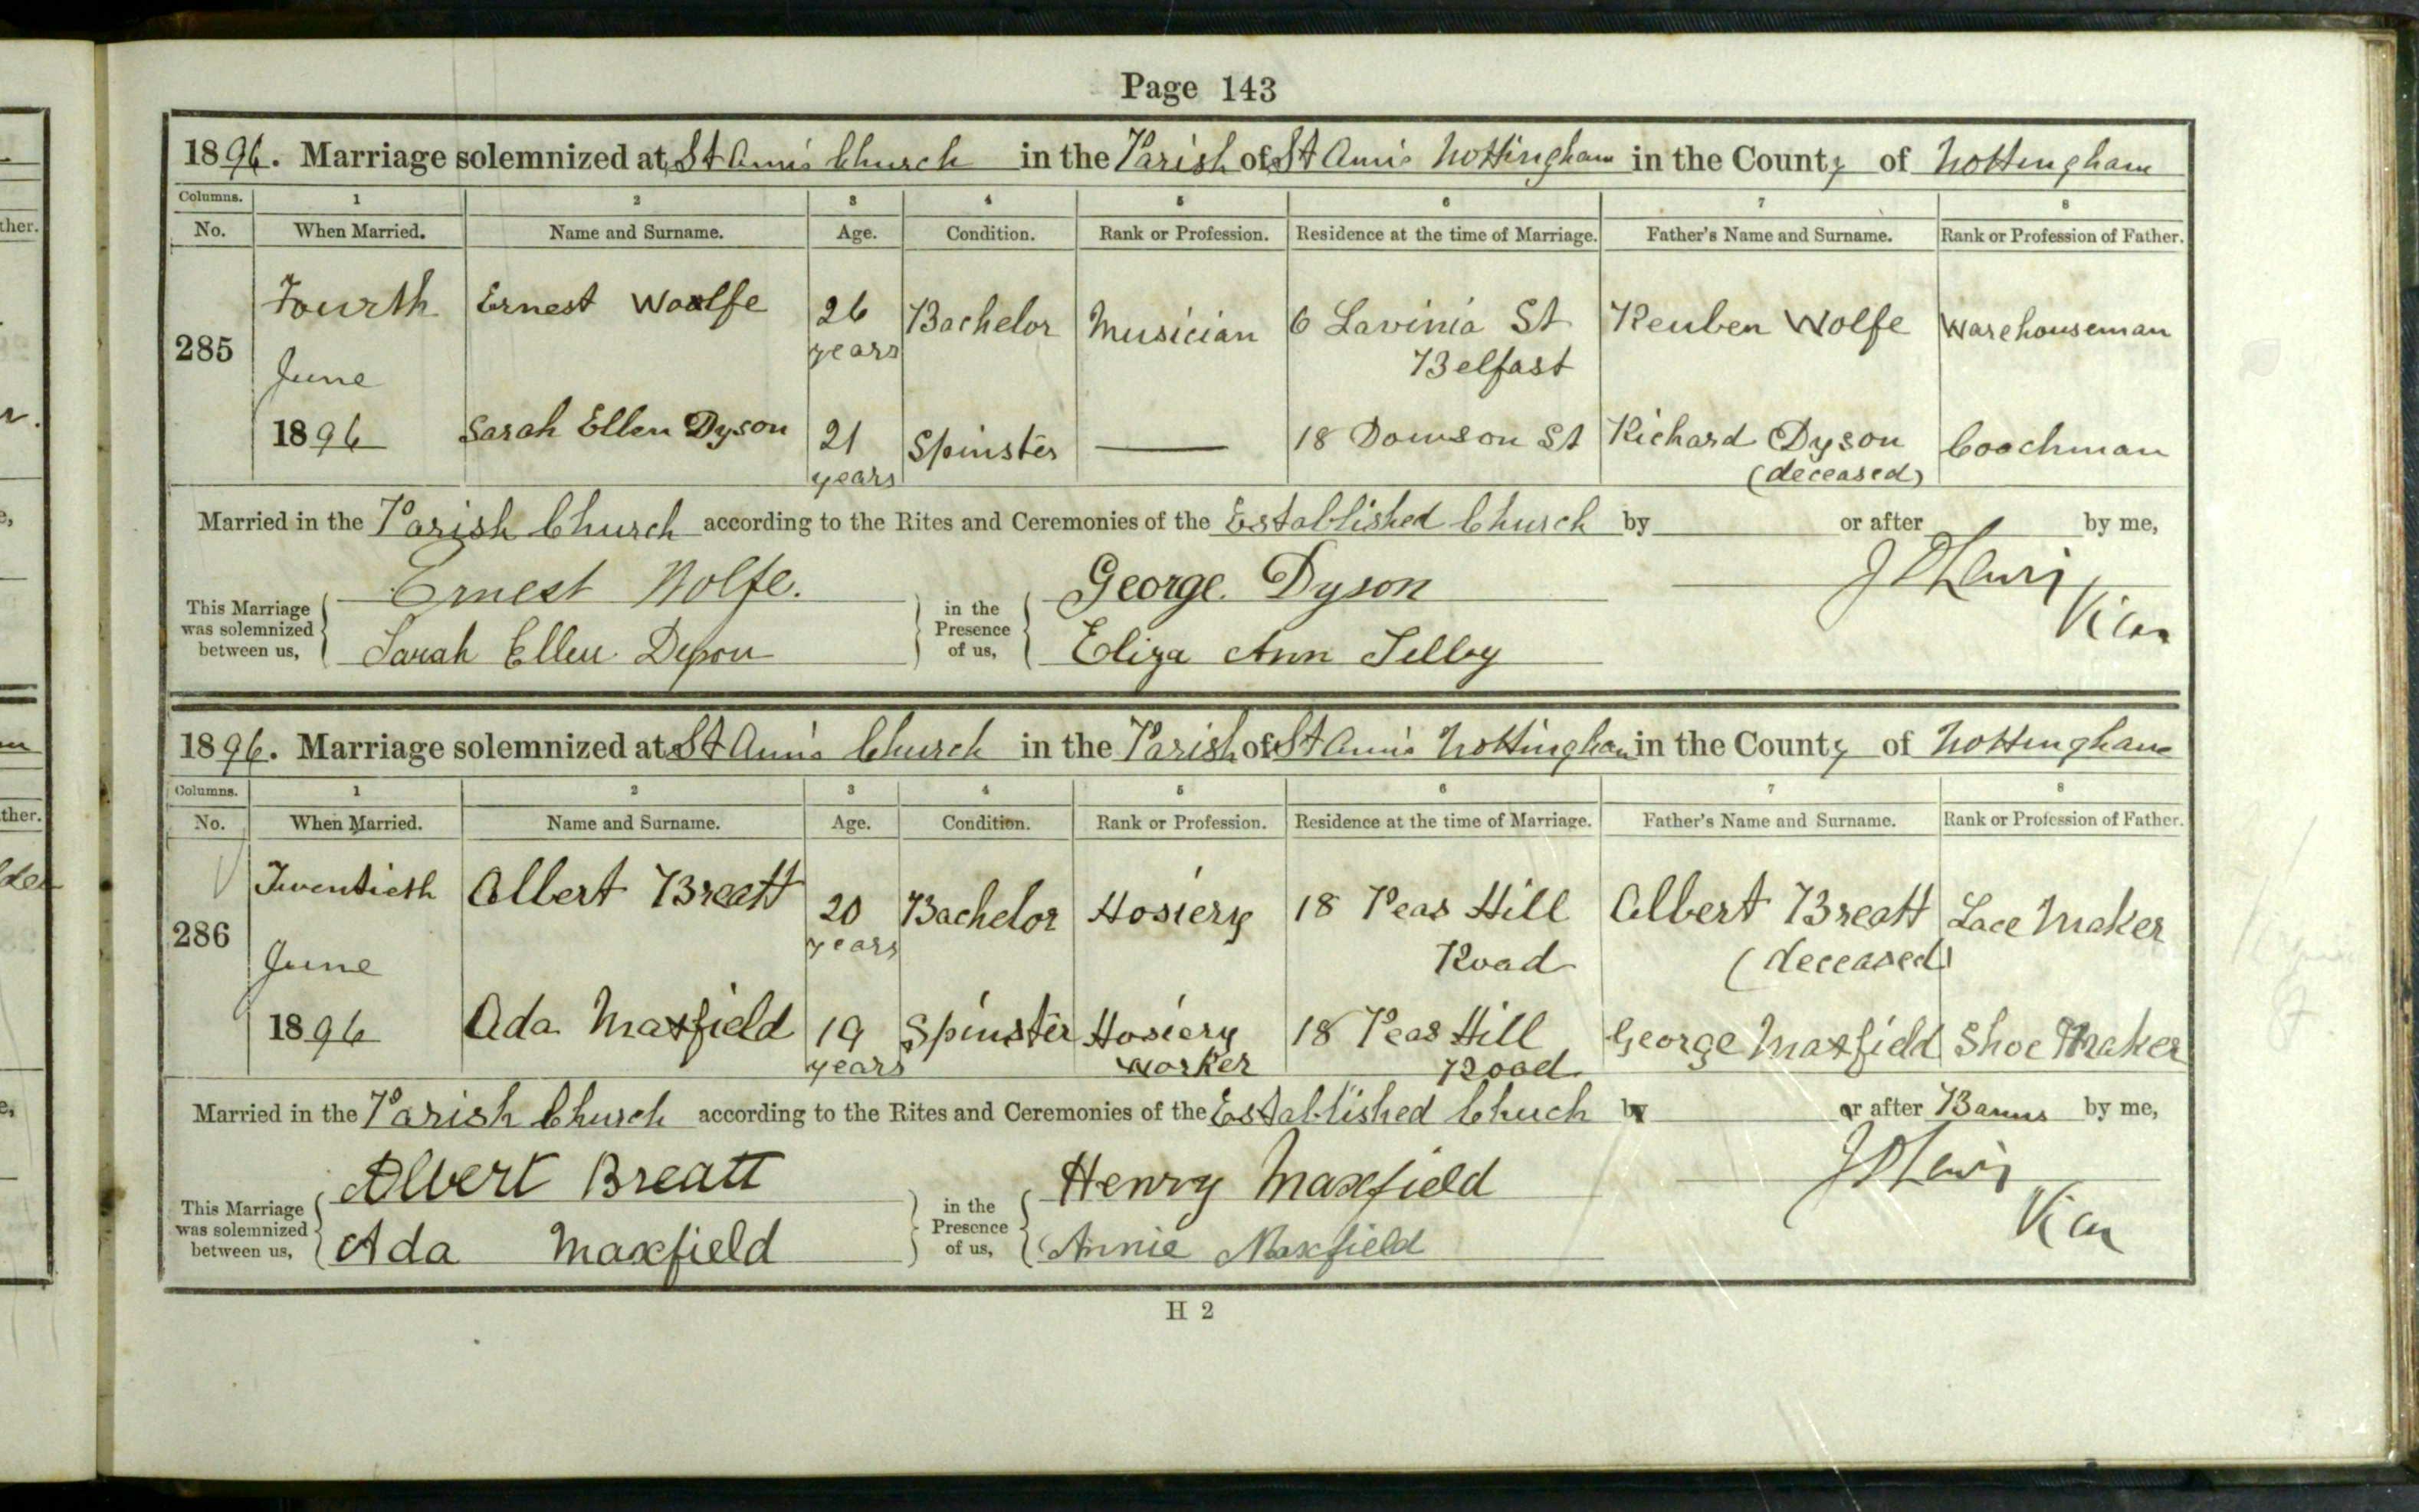 Page 143
1896. Marriage solemnized at St Ann's Church in the Parish of St Ann's Nottingham in the County of Nottingham
Columns. 1 2 3 4 5 6 7 8
No. When Married. Name and Surname. Age. Condition. Rank or Profession. Residence at the time of Marriage. Father's Name and Surname. Rank or Profession of Father.
285 Fourth June 1896
Ernest Woolfe 26 years Bachelor Musician 6 Lavinia St Belfast Reuben Wolfe Warehouseman
Sarah Ellen Dyson 21 years Spinster — 18 Dowson St Richard Dyson (deceased) Coachman
Married in the Parish Church according to the Rites and Ceremonies of the Established Church by or after by me,
This Marriage was solemnized between us, Ernest Wolfe. Sarah Ellen Dyson in the Presence of us, George Dyson Eliza Ann Selby
Vicar
1896. Marriage solemnized at St Ann's Church in the Parish of St Ann's Nottingham in the County of Nottingham
Columns. 1 2 3 4 5 6 7 8
No. When Married. Name and Surname. Age. Condition. Rank or Profession. Residence at the time of Marriage. Father's Name and Surname. Rank or Profession of Father.
286 Twentieth June 1896
Albert Breatt 20 years Bachelor Hosiery 18 Peas Hill Road Albert Breatt (deceased) Lace Maker
Ada Maxfield 19 years Spinster Hosiery Worker 18 Peas Hill Road George Maxfield Shoe Maker
Married in the Parish Church according to the Rites and Ceremonies of the Established Chuch by or after Banns by me,
This Marriage was solemnized between us, Albert Breatt Ada Maxfield in the Presence of us, Henry Maxfield Annie Maxfield
Vicar
H 2